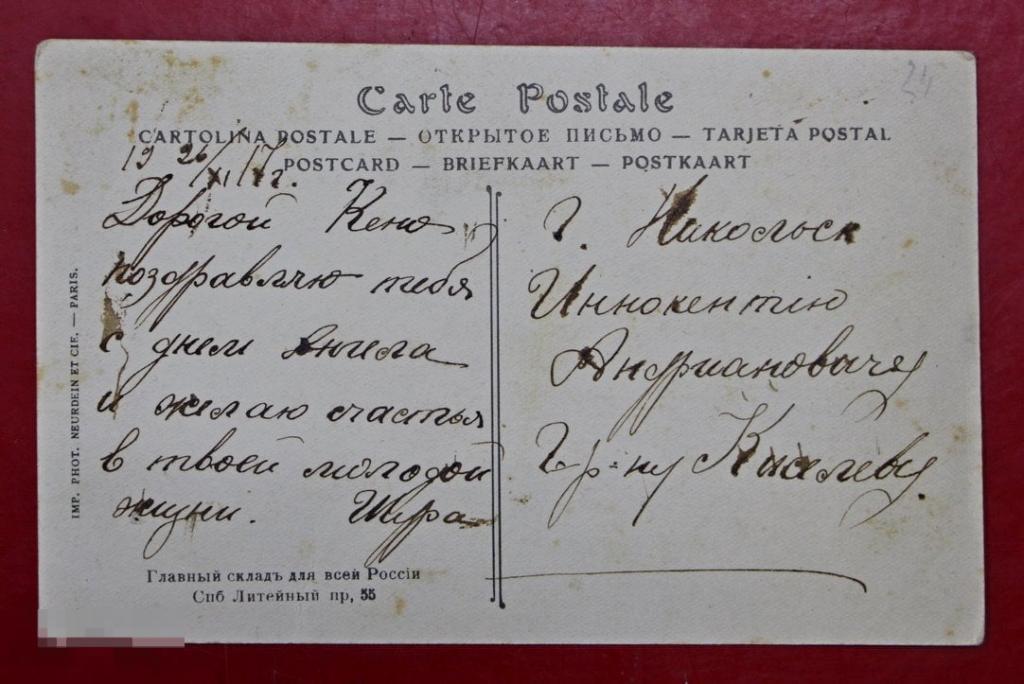 24
Carte Postale
CARTOLINA POSTALE — ОТКРЫТОЕ ПИСЬМО — TARJETA POSTAL
POSTCARD — BRIEFKAART — POSTKAART
19 26/XI 17 г.
Дорогой Кено
поздравляю тебя
с днем Ангела
и желаю счастья
в твоей молодой
жизни. Шура
Г. Никольск
Иннокентію
Андриановичу
Гр-ну Киселеву.
IMP. PHOT. NEURDEIN ET CIE. — PARIS.
Главный складъ для всей Россіи
Спб Литейный пр, 55